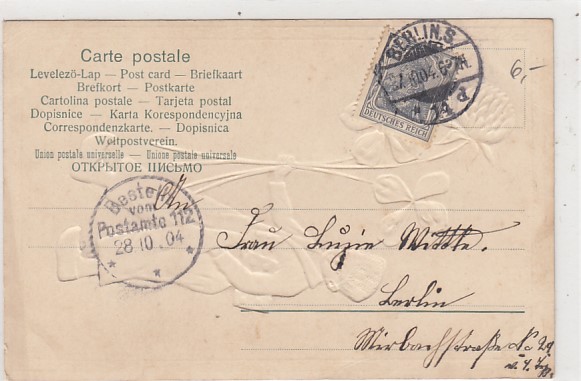 Carte postale
Levelezö-Lap — Post card — Briefkaart
Brefkort — Postkarte
Cartolina postale — Tarjeta postal
Dopisnice — Karta Korespondencyjna
Correspondenzkarte. — Dopisnica
Weltpostverein.
Union postale universelle — Unione postale universale
ОТКРЫТОЕ ПИСЬМО
BERLIN.S.
14 d
DEUTSCHES REICH
6,-
Bestellt
vom
Postamte 112
28.10.04
An
Frau Luzie Witte.
Berlin
Mirbachstraße No 29
v. 4. Trp.